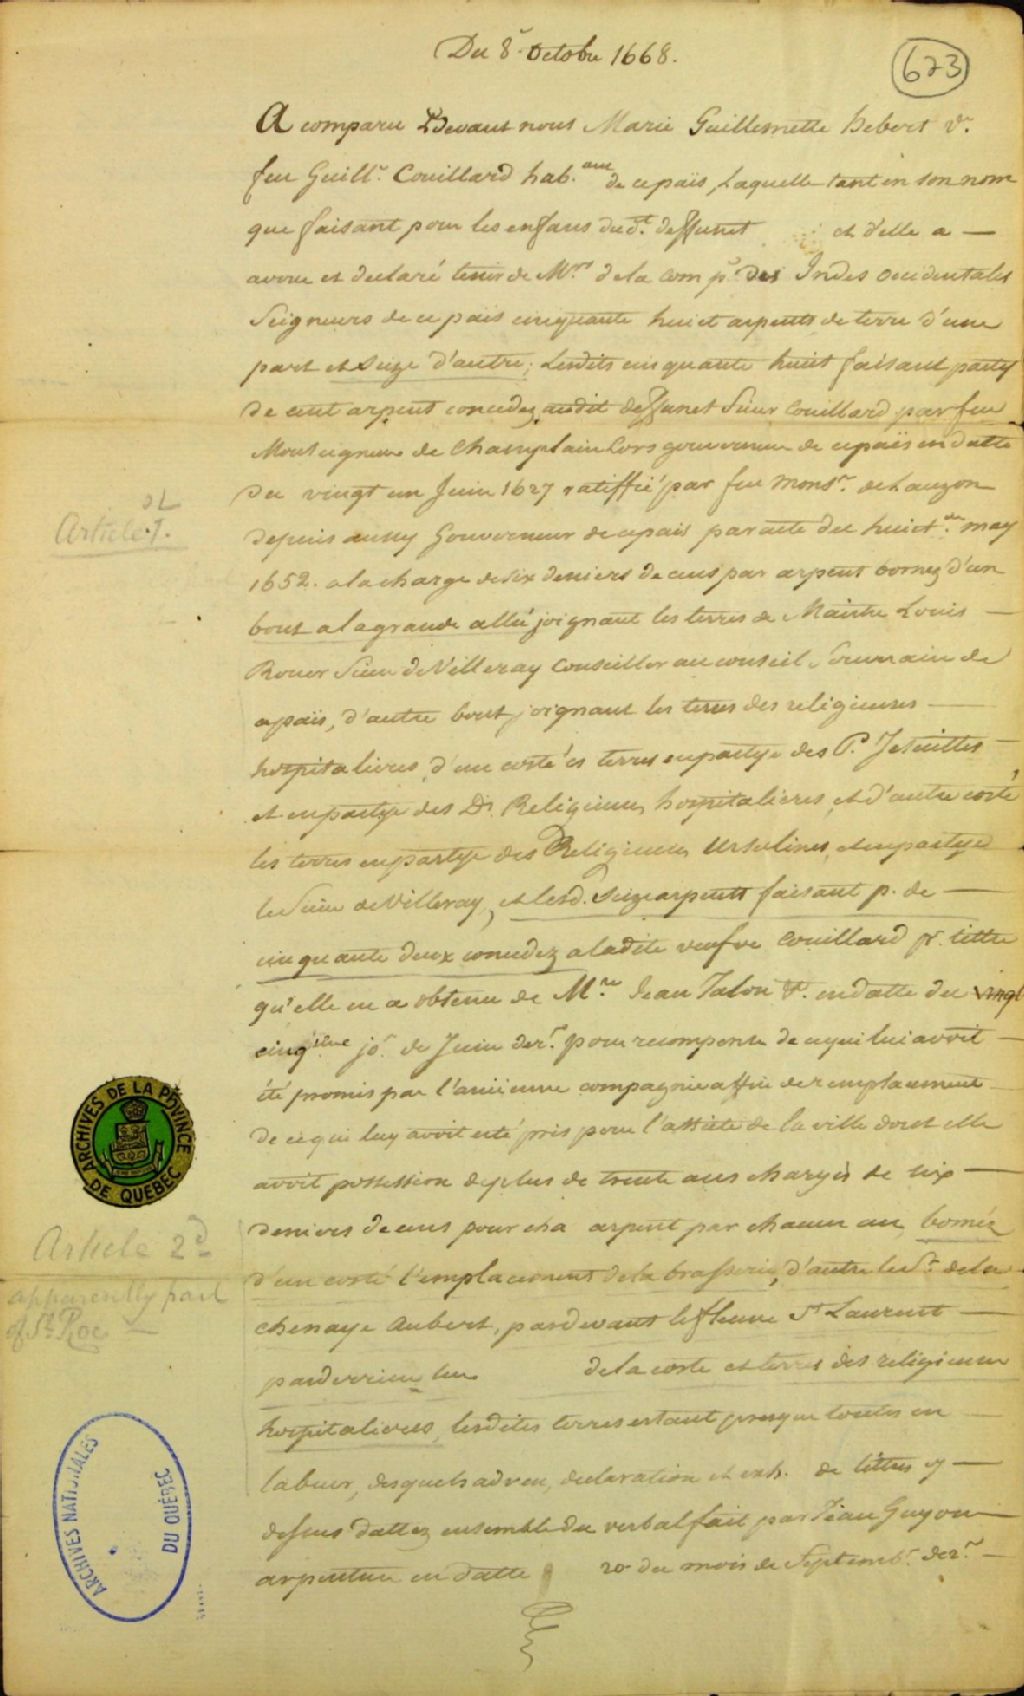 Du 8e Octobre 1668.
673
A comparu Devant nous Marie Guillemette hebert ve.
feu Guille. Couillard hab.ant de ce païs, Laquelle tant en son nom
que faisant pour les enfans dud.t deffunct et d'elle a —
avoué et declaré tenir de Mrs. de la comp.e des Indes Occidentales
Seigneurs de ce païs cinquante huict arpents de terre d'une
part et Seize d'autre; Lesdits cinquante huict faisant party
de cent arpents concedez audit deffunct Sieur Couillard par feu
Monseigneur de Champlain Lors gouverneur de ce païs en datte
du vingt un Juin 1627 ratiffié par feu Monsr. de Lauzon
depuis aussy Gouverneur de ce païs par acte du huict.e may
1652. a la charge de six deniers de cens par arpent bornez d'un
bout a la grande allée joignant les terres de Maistre Louis —
Rouer Sieur de Villeray Conseiller au conseil Souverain de
ce païs, d'autre bout joignant les terres des religieuses —
hospitalieres, d'un costé es terres en partye des P. Jesuittes —
et en partye des Ds. Religieuses hospitalieres, et d'autre costé
les terres en partye des Religieuses Ursulines, et en partye
le Sieur de Villeray, et lesd. Seize arpents faisant p. de —
cinquante deux concedez a ladite veufve Couillard pr. tittre
qu'elle en a obtenu de Mre. Jean Talon &. en datte du vingt
cinqième jor. de Juin der. pour recompense de ce qui lui avoit —
été promis par l'ancienne compagnie affin de remplacement —
de ce qui luy avoit esté pris pour l'assiete de la ville dont elle
avoit possession de plus de trente ans chargés de six —
deniers de cens pour cha arpent par chacun an, bornéz
d'un costé l'emplacement de la brasserie, d'autre le Sr. de la
chenaye Aubert, pardevant le fleuve St Laurent —
par derriere de la coste et terres des religieuses
hospitalieres, lesdites terres estant presque toutes en —
labeur, desquels adveu, declaration et exh. de tittres cy —
dessus dattez ensemble du verbal fait par Jean Guyon —
arpenteur en datte 20 du mois de Septembr. der. —
Article 1.
Article 2d
apparently part
of St Roc —
ARCHIVES DE LA POVINCE
DE QUEBEC
ARCHIVES NATIONALES
DU QUÉBEC